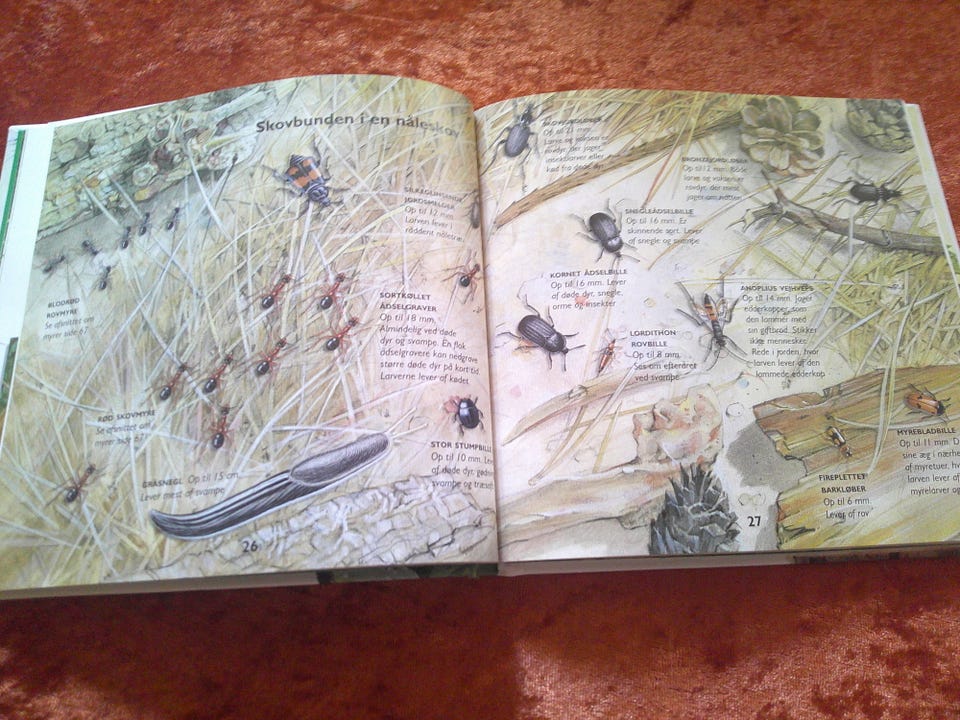 Skovbunden i en nåleskov
SILKEGLINSENDE
JORDSMELDER
Op til 12 mm.
Larven lever i
råddent nåletræ.
BLODRØD
ROVMYRE
Se afsnittet om
myrer side 67
SORTKØLLET
ÅDSELGRAVER
Op til 18 mm.
Almindelig ved døde
dyr og svampe. En flok
ådselgravere kan nedgrave
større døde dyr på kort tid.
Larverne lever af kødet
RØD SKOVMYRE
Se afsnittet om
myrer side 67
GRÅSNEGL Op til 15 cm.
Lever mest af svampe
STOR STUMPBILLE
Op til 10 mm. Lever
af døde dyr, gødning
svampe og træsaft
26
SKOVJORDLØBER
Op til 21 mm.
Larve og voksen er
rovdyr, der jager
insektlarver eller
kød fra døde dyr
BRONZEJORDLØBER
Op til 12 mm. Både
larve og voksen er
rovdyr, der mest
jager om natten
SNEGLEÅDSELBILLE
Op til 16 mm. Er
skinnende sort. Lever
af snegle og svampe
KORNET ÅDSELBILLE
Op til 16 mm. Lever
af døde dyr, snegle,
orme og insekter
ANOPLIUS VEJHVEPS
Op til 14 mm. Jager
edderkopper, som
den lammer med
sin giftbrod. Stikker
ikke mennesker.
Rede i jorden, hvor
larven lever af den
lammede edderkop
LORDITHON
ROVBILLE
Op til 8 mm.
Ses om efteråret
ved svampe
MYREBLADBILLE
Op til 11 mm.
sine æg i nærhe
af myretuer, hv
larven lever af
myrelarver og
FIREPLETTET
BARKLØBER
Op til 6 mm.
Lever af rov
27